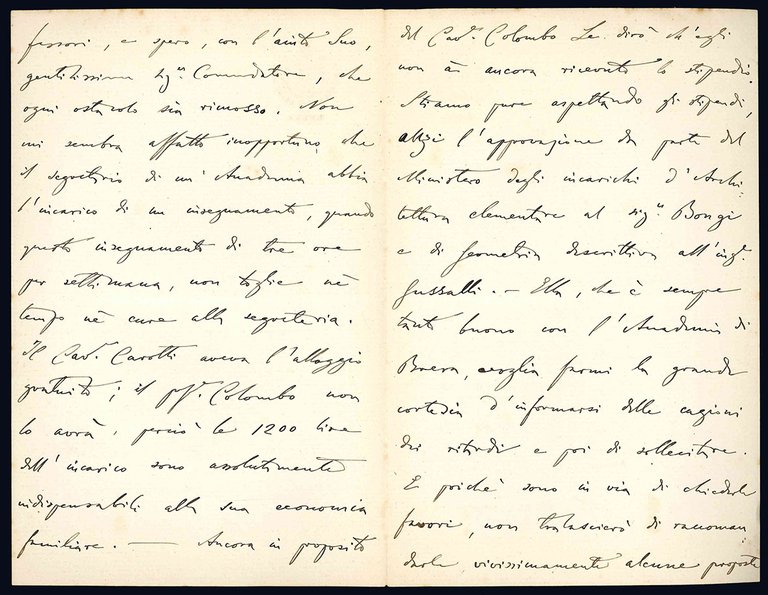 fessori, e spero, con l'aiuto Suo,
gentilissimo Sig.r Comendatore, che
ogni ostacolo sia rimosso. Non
mi sembra affatto inopportuno che
il segretario di un'Accademia abbia
l'incarico di un insegnamento, quando
questo insegnamento di tre ore
per settimana, non toglie nè
tempo nè cure alla segreteria.
Il Cav.r Carotti aveva l'alloggio
gratuito; il prof.r Colombo non
lo avrà, perciò le 1200 lire
dell'incarico sono assolutamente
indispensabili alla sua economia
familiare. — Ancora in proposito
del Cav.r Colombo Le dirò ch'egli
non à ancora ricevuto lo stipendio.
Stiamo pure aspettando gli stipendi,
anzi l'approvazione da parte del
Ministero degli incarichi d'Archi-
tettura elementare al sig.r Bongi
e di Geometria descrittiva all'ing.r
Gussalli. — Ella, che è sempre
tanto buono con l'Accademia di
Brera, voglia farmi la grande
cortesia d'informarsi delle cagioni
dei ritardi e poi di sollecitare.
E poichè sono in via di chiederle
favori, non tralascierò di raccoman
darle vivissimamente alcune proposte